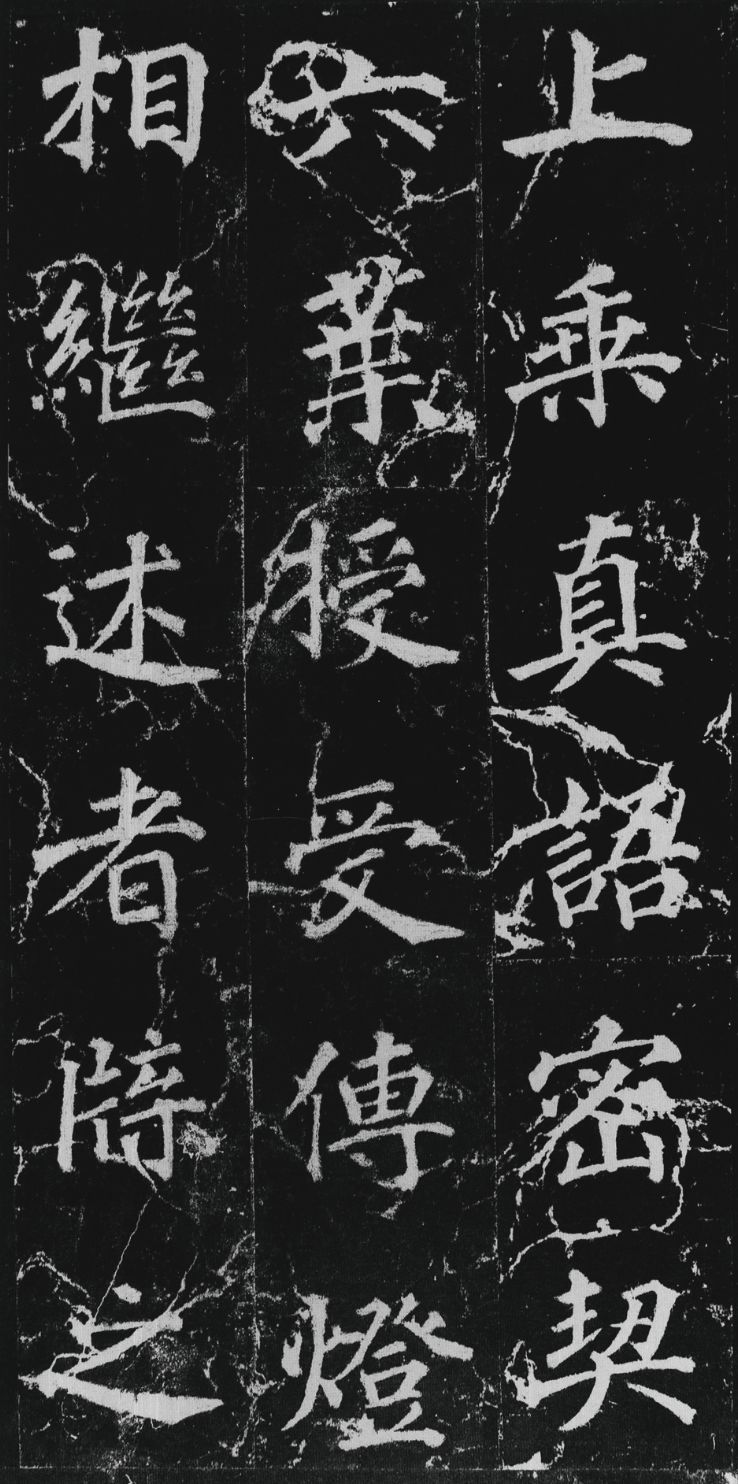 上乘真語密契
六葉授受傳燈
相繼述者牓之